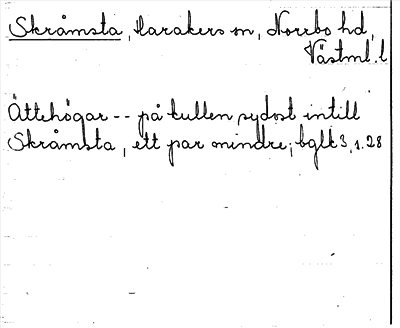 Skråmsta, Harakers sn, Norrbo hd,
Västml. l
Ättehögar -- på kullen sydost intill
Skråmsta, ett par mindre; bglk 3.1.28